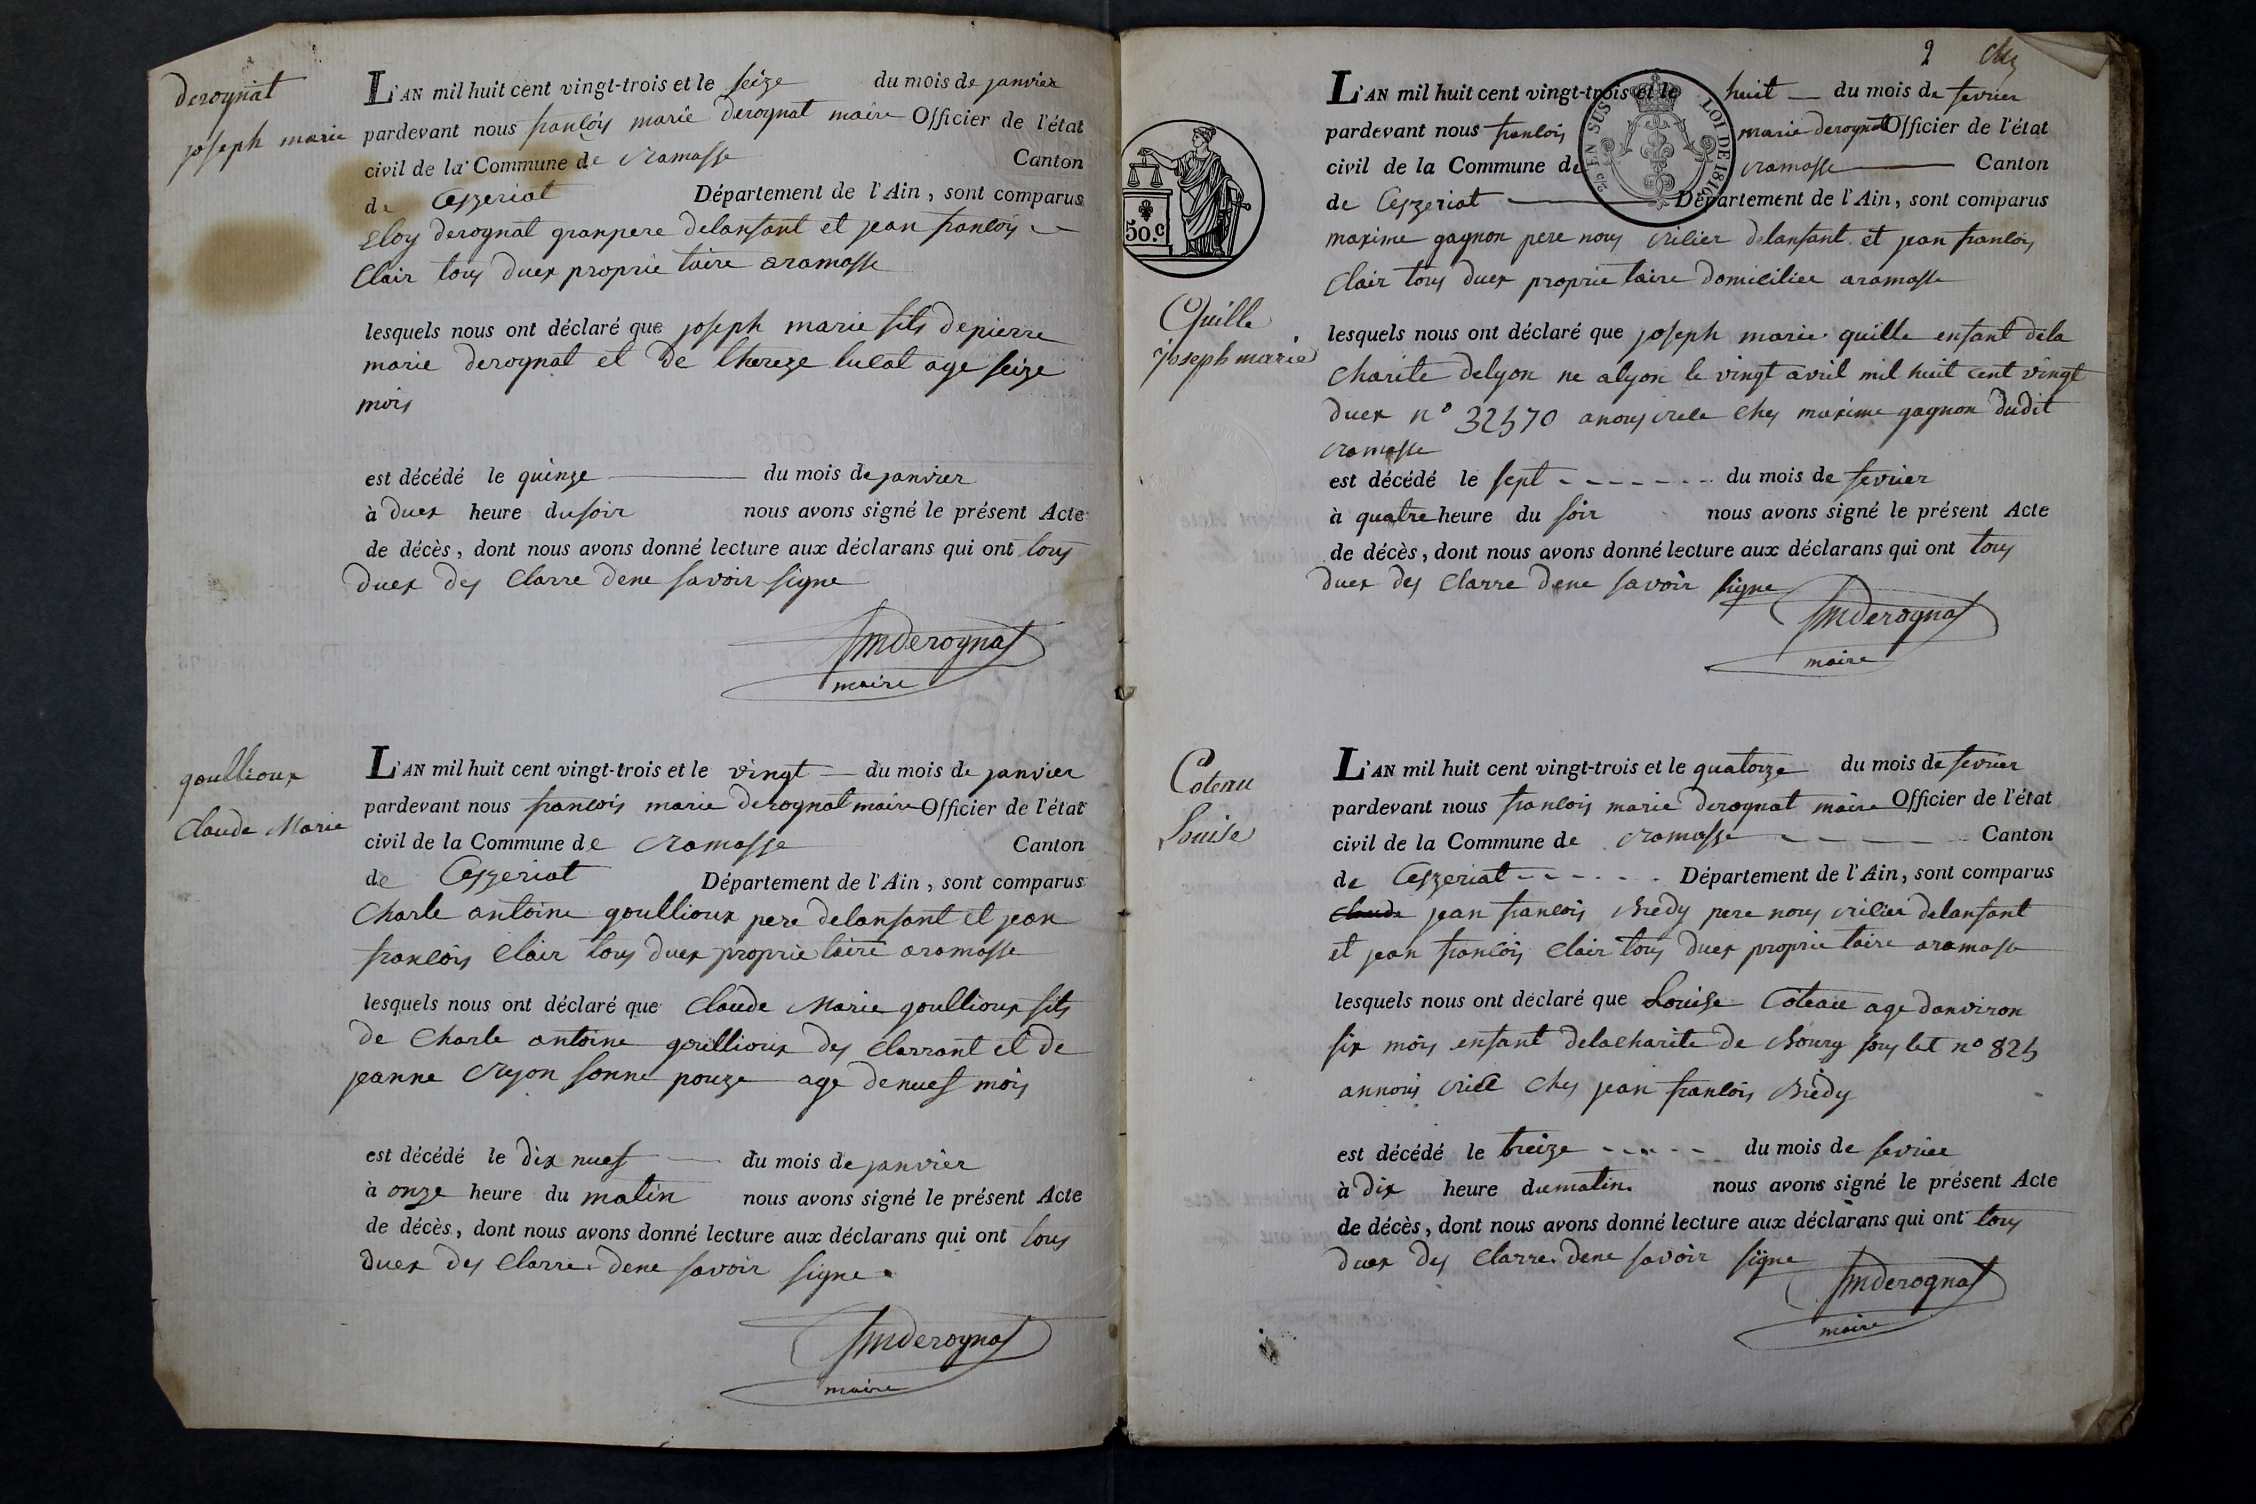 derognat
joseph marie
L'AN mil huit cent vingt-trois et le seize du mois de janvier
pardevant nous francois marie derognat maire Officier de l'état
civil de la Commune de cramasse Canton
de Ceyzeriat Département de l'Ain, sont comparus
Eloy derognat granpere delanfant et jean francois
Clair tous duex proprietaire aramasse
lesquels nous ont déclaré que joseph marie fils depierre
marie derognat et de thereze lucat age seize
mois
est décédé le quinze du mois de janvier
à duex heure du soir nous avons signé le présent Acte
de décès, dont nous avons donné lecture aux déclarans qui ont tous
duex des Clarre dene savoir signe
fmderognat
maire
goullioux
Claude Marie
L'AN mil huit cent vingt-trois et le vingt du mois de janvier
pardevant nous francois marie derognat maire Officier de l'état
civil de la Commune de cramasse Canton
de Ceyzeriat Département de l'Ain, sont comparus
Charle antoine goullioux pere delanfant et jean
francois Clair tous duex proprietaire aramasse
lesquels nous ont déclaré que Claude Marie goullioux fils
de Charle antoine goullioux des Clarrant et de
jeanne sonne pouze age denuef mois
est décédé le dix nuef du mois de janvier
à onze heure du matin nous avons signé le présent Acte
de décès, dont nous avons donné lecture aux déclarans qui ont tous
duex des Clarre dene savoir signe
fmderognat
maire
2
EN SUS
LOI DE 1816
50.C
Quille
joseph marie
L'AN mil huit cent vingt-trois et le huit du mois de fevrier
pardevant nous francois marie derognat Officier de l'état
civil de la Commune de cramasse Canton
de Ceyzeriat Département de l'Ain, sont comparus
maxime gagnon pere nous cricier delanfant et jean francois
Clair tous duex proprietaire domiciliee aramasse
lesquels nous ont déclaré que joseph marie quille enfant dela
charite delyon ne alyon le vingt avril mil huit cent vingt
duex n° 32570 anous chez maxime gagnon dudit
cramasse
est décédé le sept du mois de fevrier
à quatre heure du soir nous avons signé le présent Acte
de décès, dont nous avons donné lecture aux déclarans qui ont tous
duex des Clarre dene savoir signe
fmderognat
maire
Coteau
Louise
L'AN mil huit cent vingt-trois et le quatorze du mois de fevrier
pardevant nous francois marie derognat maire Officier de l'état
civil de la Commune de cramasse Canton
de Ceyzeriat Département de l'Ain, sont comparus
Claude jean francois Bredy pere nous cricier delanfant
et jean francois Clair tous duex proprietaire aramasse
lesquels nous ont déclaré que Louise Coteau age danviron
six mois enfant delacharite de Bourg sous let n° 825
annous chez jean francois Bredy
est décédé le treize du mois de fevrier
à dix heure dumatin nous avons signé le présent Acte
de décès, dont nous avons donné lecture aux déclarans qui ont tous
duex des Clarre dene savoir signe
fmderognat
maire